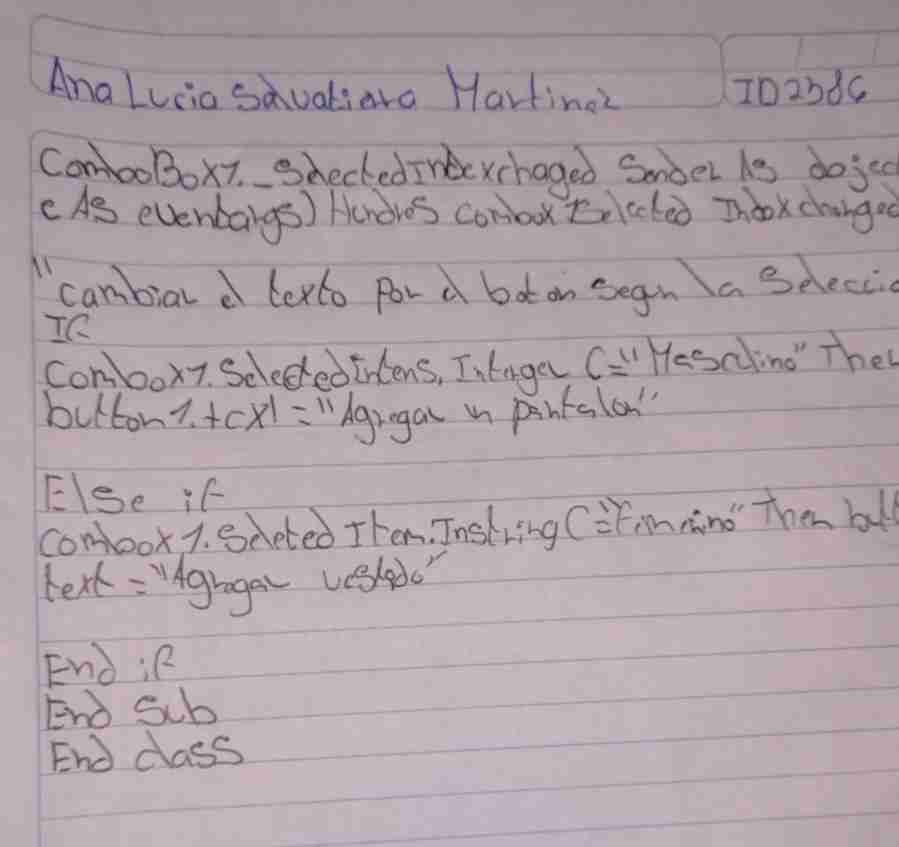 Ana Lucia Salvatiara Martinez ID2386
ComboBox1._SelectedIndexchaged Sender As dojec
e As eventargs) Handres combox1 Selected Indoxchanged
"cambiar el texto por el boton segun la Selecció
If
Combox1.SelectedIntens, Integer (="Mascalino" Then
button1.text="Agregar un pantalon"
Else if
Combox1.Seleted Item.Instring (="Femenino" Then but
text="Agregar vestido"
End if
End Sub
End class